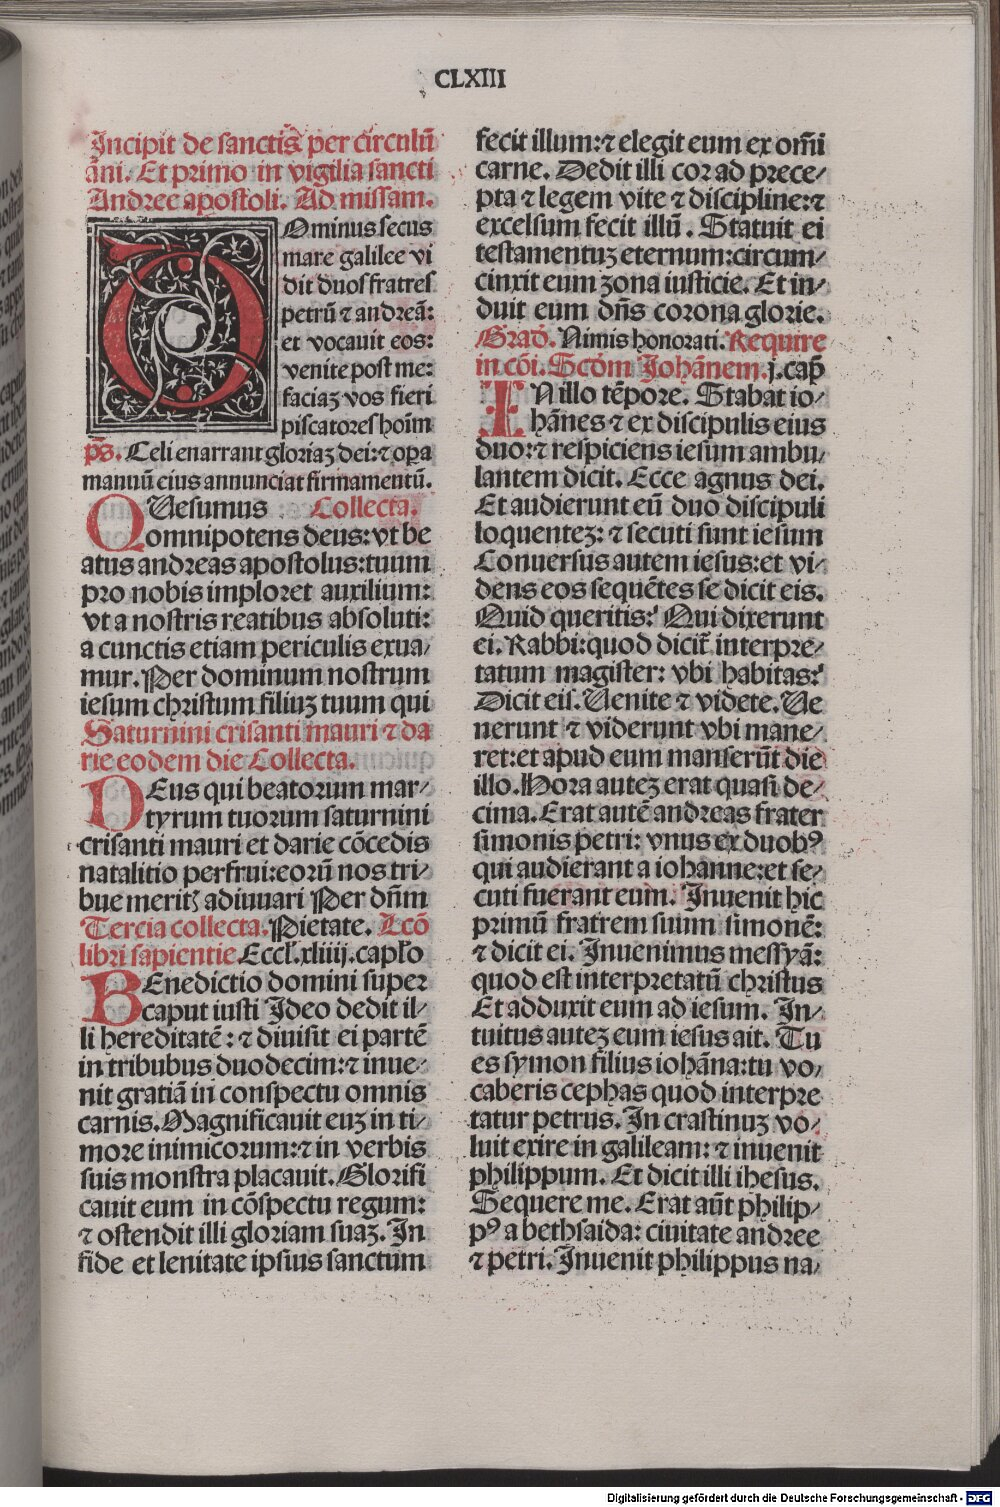 CLXIII
Incipit de sanctis per circulū
āni. Et primo in vigilia sancti
Andree apostoli. Ad missam.
Dominus secus
mare galilee vi
dit duos fratres
petrū ⁊ andreā:
et vocauit eos:
venite post me:
faciaꝫ vos fieri
piscatores hoīm
ps̄. Celi enarrant gloriaꝫ dei: ⁊ oꝑa
manuū eius annunciat firmamentū.
QUesumus Collecta.
omnipotens deus: vt be
atus andreas apostolus: tuum
pro nobis imploret auxilium:
vt a nostris reatibus absoluti:
a cunctis etiam periculis exua/
mur. Per dominum nostrum
iesum christum filiuꝫ tuum qui
Saturnini crisanti mauri ⁊ da
rie eodem die Collecta.
DEus qui beatorum mar/
tyrum tuorum saturnini
crisanti mauri et darie cōcedis
natalitio perfrui: eorū nos tri/
bue meritꝭ adiuuari Per dn̄m
Tercia collecta. Pietate. Lccō
libri sapientie. Eccl̄. xliiij. capl̄o
BEnedictio domini super
caput iusti Ideo dedit il/
li hereditatē: ⁊ diuisit ei partē
in tribubus duodecim: ⁊ inue/
nit gratiā in conspectu omnis
carnis. Magnificauit euꝫ in ti/
more inimicorum: ⁊ in verbis
suis monstra placauit. Glorifi
cauit eum in cōspectu regum:
⁊ ostendit illi gloriam suaꝫ. In
fide et lenitate ipsius sanctum
fecit illum: ⁊ elegit eum ex om̄i
carne. Dedit illi cor ad prece/
pta ⁊ legem vite ⁊ discipline: ⁊
excelsum fecit illū. Statuit ei
testamentuꝫ eternum: circum/
cinxit eum zona iusticie. Et in/
duit eum dn̄s corona glorie.
Grad̄. Nimis honorati. Require
in cōi. Scd̄m Johānem. j. cap̄
IN illo tēpore. Stabat io/
hānes ⁊ ex discipulis eius
duo: ⁊ respiciens iesum ambu/
lantem dicit. Ecce agnus dei.
Et audierunt eū duo discipuli
loquenteꝫ: ⁊ secuti sunt iesum
Conuersus autem iesus: et vi/
dens eos sequētes se dicit eis.
Quid queritis? Qui dixerunt
ei. Rabbi: quod dicit̄ interpre/
tatum magister: vbi habitas?
Dicit eis. Uenite ⁊ videte. Ue
nerunt ⁊ viderunt vbi mane/
ret: et apud eum manserūt die
illo. Hora auteꝫ erat quasi de/
cima. Erat autē andreas frater
simonis petri: vnus ex duobꝰ
qui audierant a iohanne: et se/
cuti fuerant eum. Inuenit hic
primū fratrem suum simonē:
⁊ dicit ei. Inuenimus messyā:
quod est interpretatū christus
Et adduxit eum ad iesum. In/
tuitus auteꝫ eum iesus ait. Tu
es symon filius iohāna: tu vo/
caberis cephas quod interpre
tatur petrus. In crastinuꝫ vo/
luit exire in galileam: ⁊ inuenit
philippum. Et dicit illi ihesus.
Sequere me. Erat aūt philip/
pꝰ a bethsaida: ciuitate andree
⁊ petri. Inuenit philippus na/
Digitalisierung gefördert durch die Deutsche Forschungsgemeinschaft - DFG